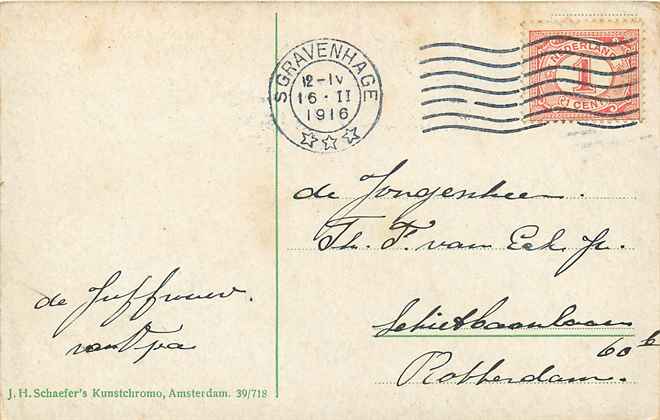 'SGRAVENHAGE
12-IV
16·II
1916
NEDERLAND
1
CENT
de Jongenheer.
Th. F. van Eck Jr.
Schietbaanlaan
60b
Rotterdam.
de Juffrouw.
van
J. H. Schaefer's Kunstchromo, Amsterdam. 39/718